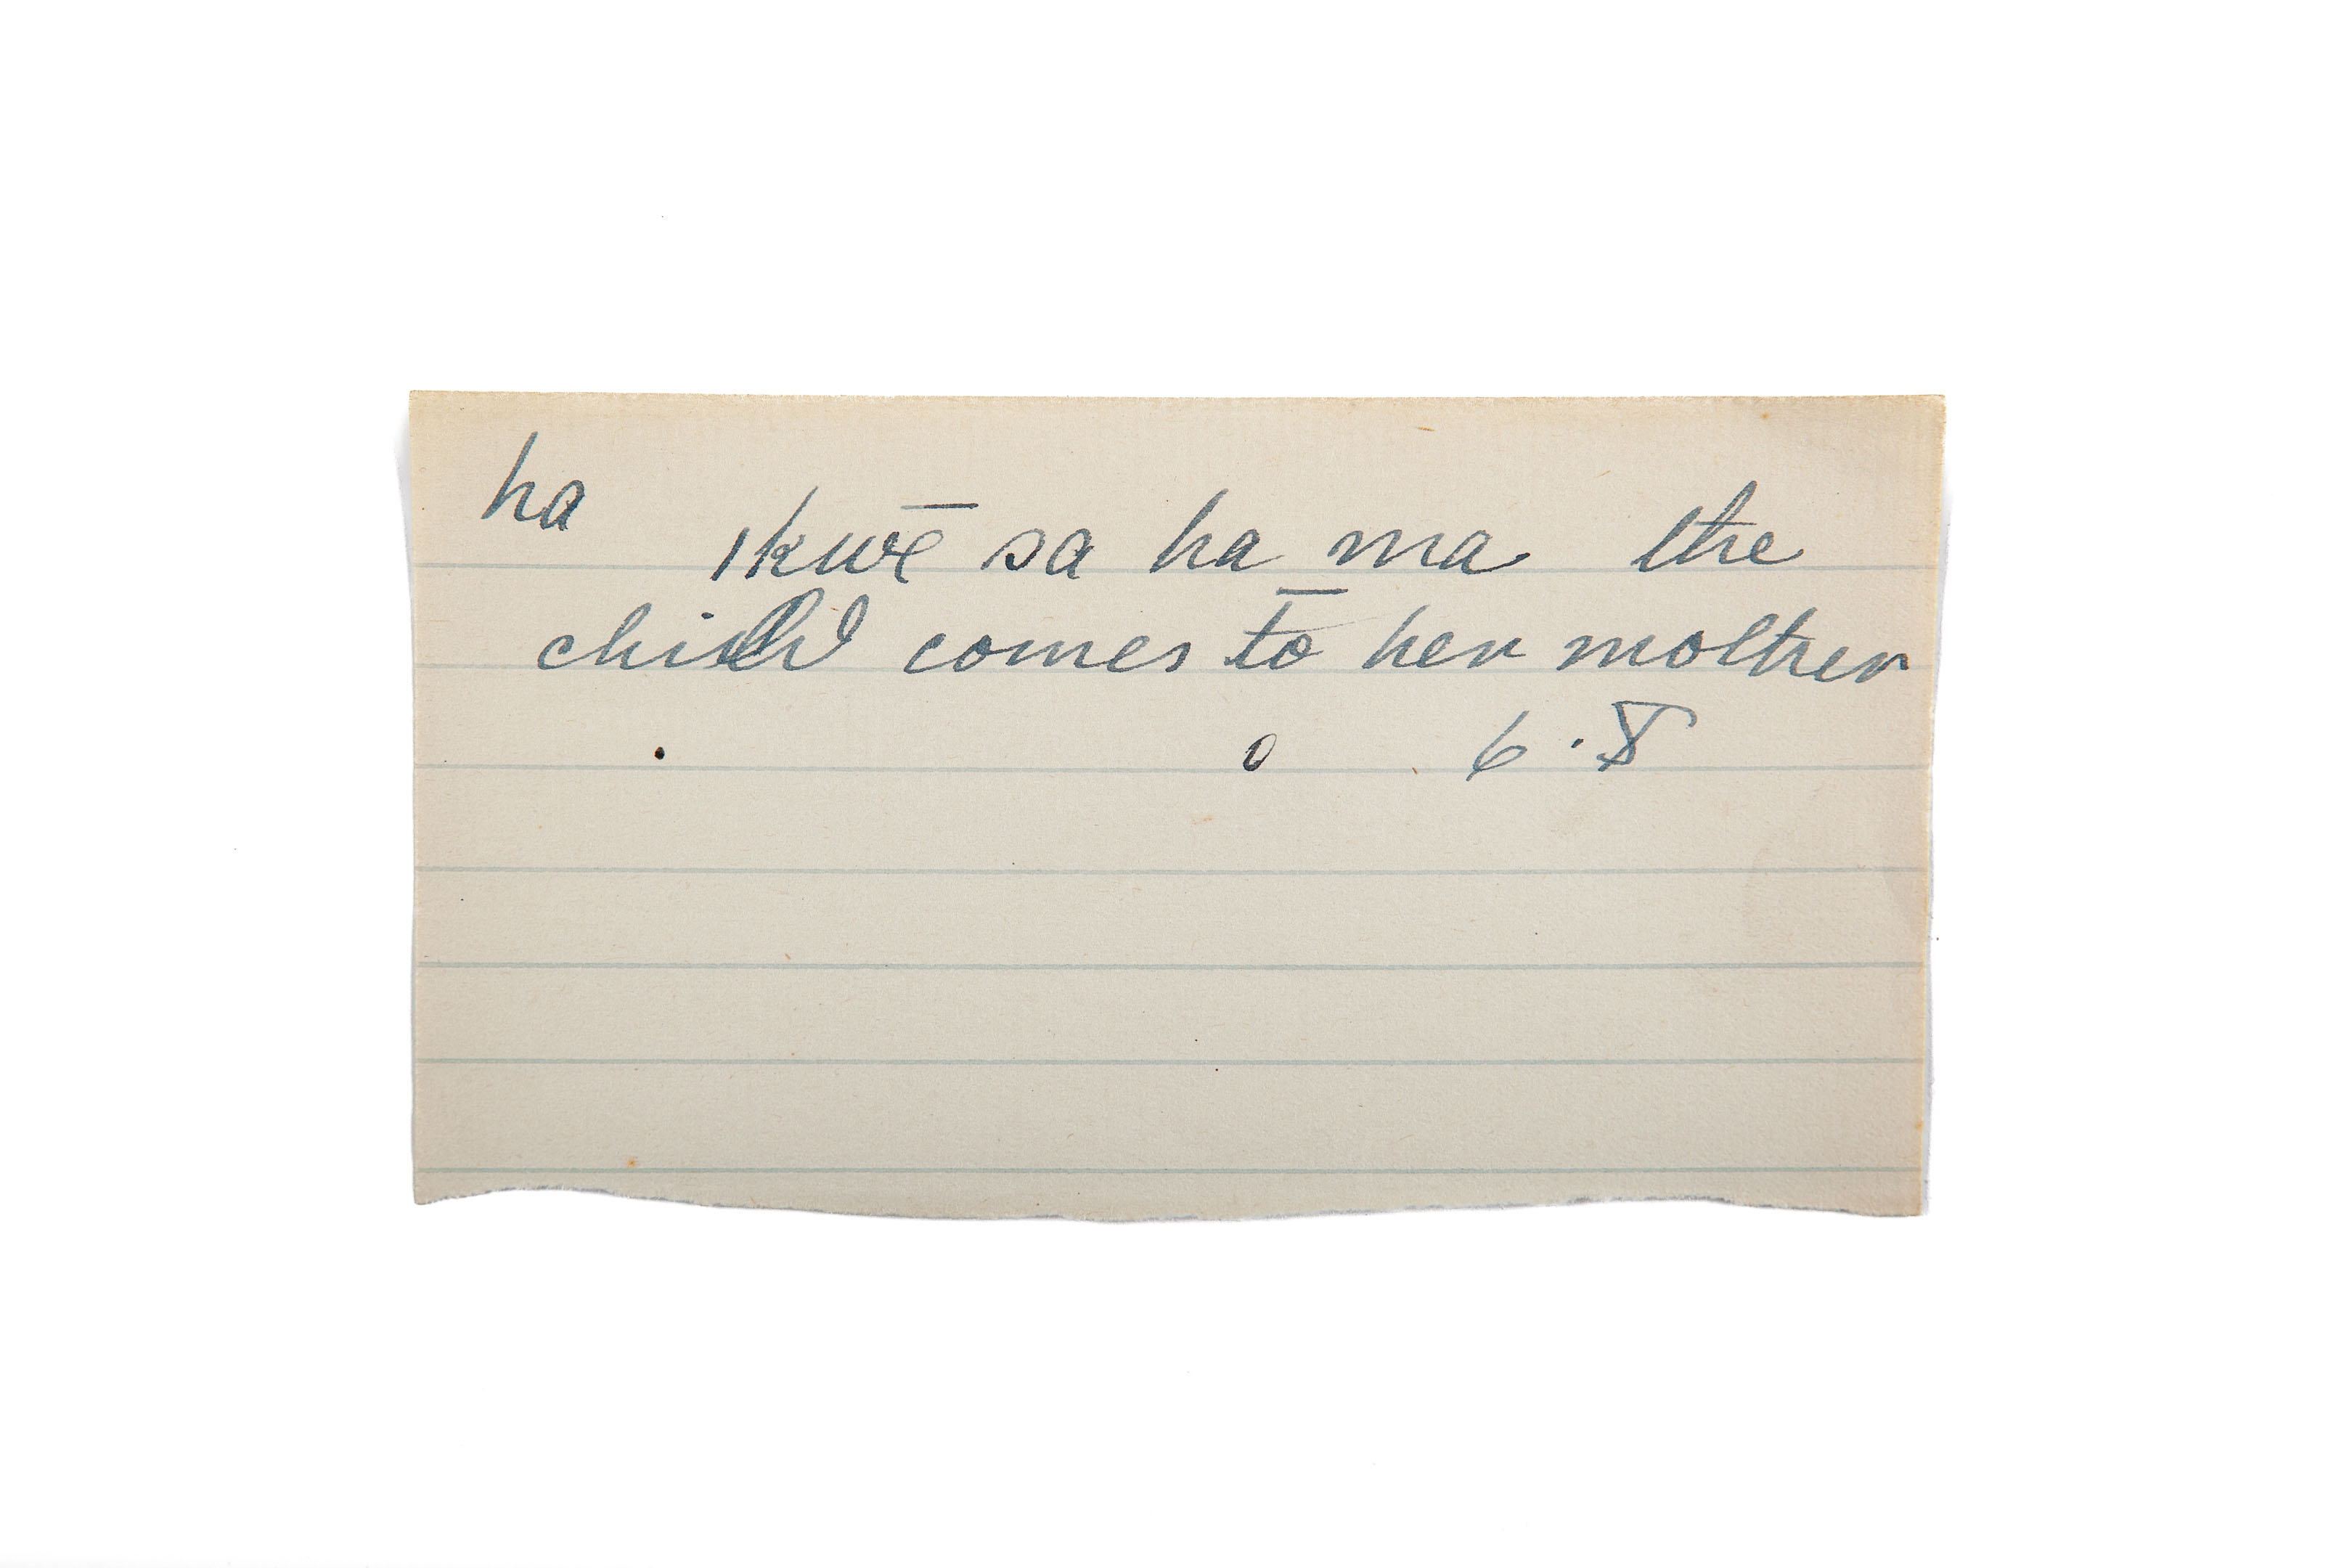 ha
ikwē sa ha ma the
child comes to her mother
o 6.8